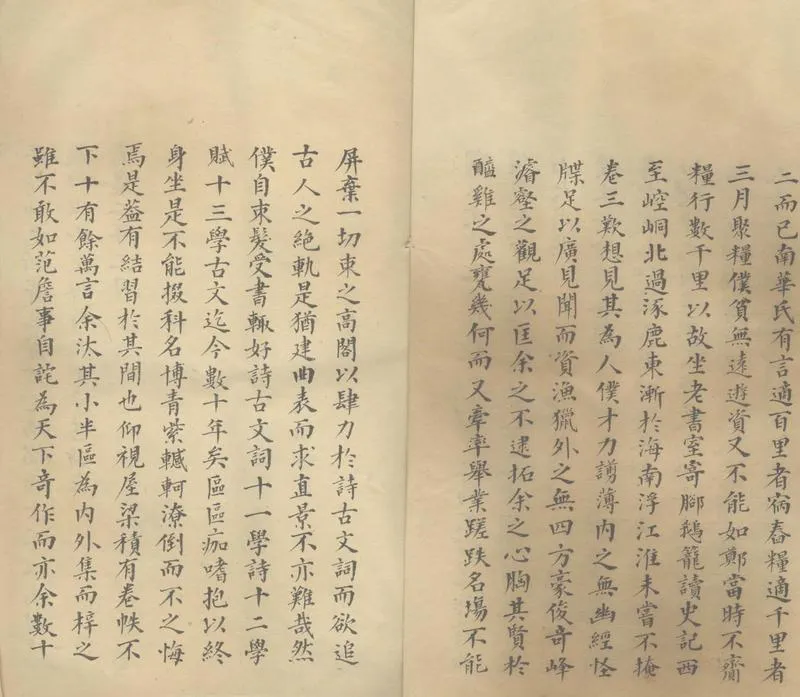 二而已南華氏有言適百里者宿舂糧適千里者
三月聚糧僕貧無遠遊資又不能如鄭當時不齎
糧行數千里以故坐老書室寄腳鵝籠讀史記西
至崆峒北過涿鹿東漸於海南浮江淮未嘗不掩
卷三歎想見其為人僕才力謭薄內之無幽經怪
牒足以廣見聞而資漁獵外之無四方豪俊奇峰
濬壑之觀足以匡余之不逮拓余之心胸其賢於
醯雞之處甕幾何而又牽率舉業蹉跌名場不能
屏棄一切束之高閣以肆力於詩古文詞而欲追
古人之絕軌是猶建曲表而求直景不亦難哉然
僕自束髮受書輒好詩古文詞十一學詩十二學
賦十三學古文迄今數十年矣區區痂嗜抱以終
身坐是不能掇科名博青紫轗軻潦倒而不之悔
焉是蓋有結習於其間也仰視屋梁積有卷帙不
下十有餘萬言余汰其小半區為內外集而梓之
雖不敢如范詹事自詫為天下奇作而亦余數十